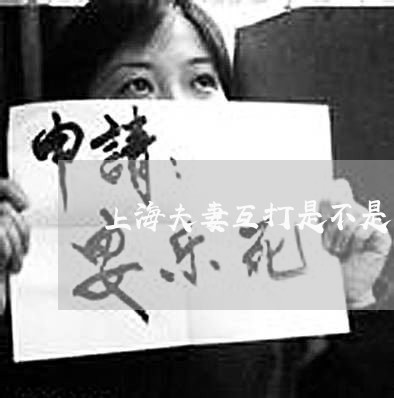 申請：
上海夫妻互打是不是
安乐死